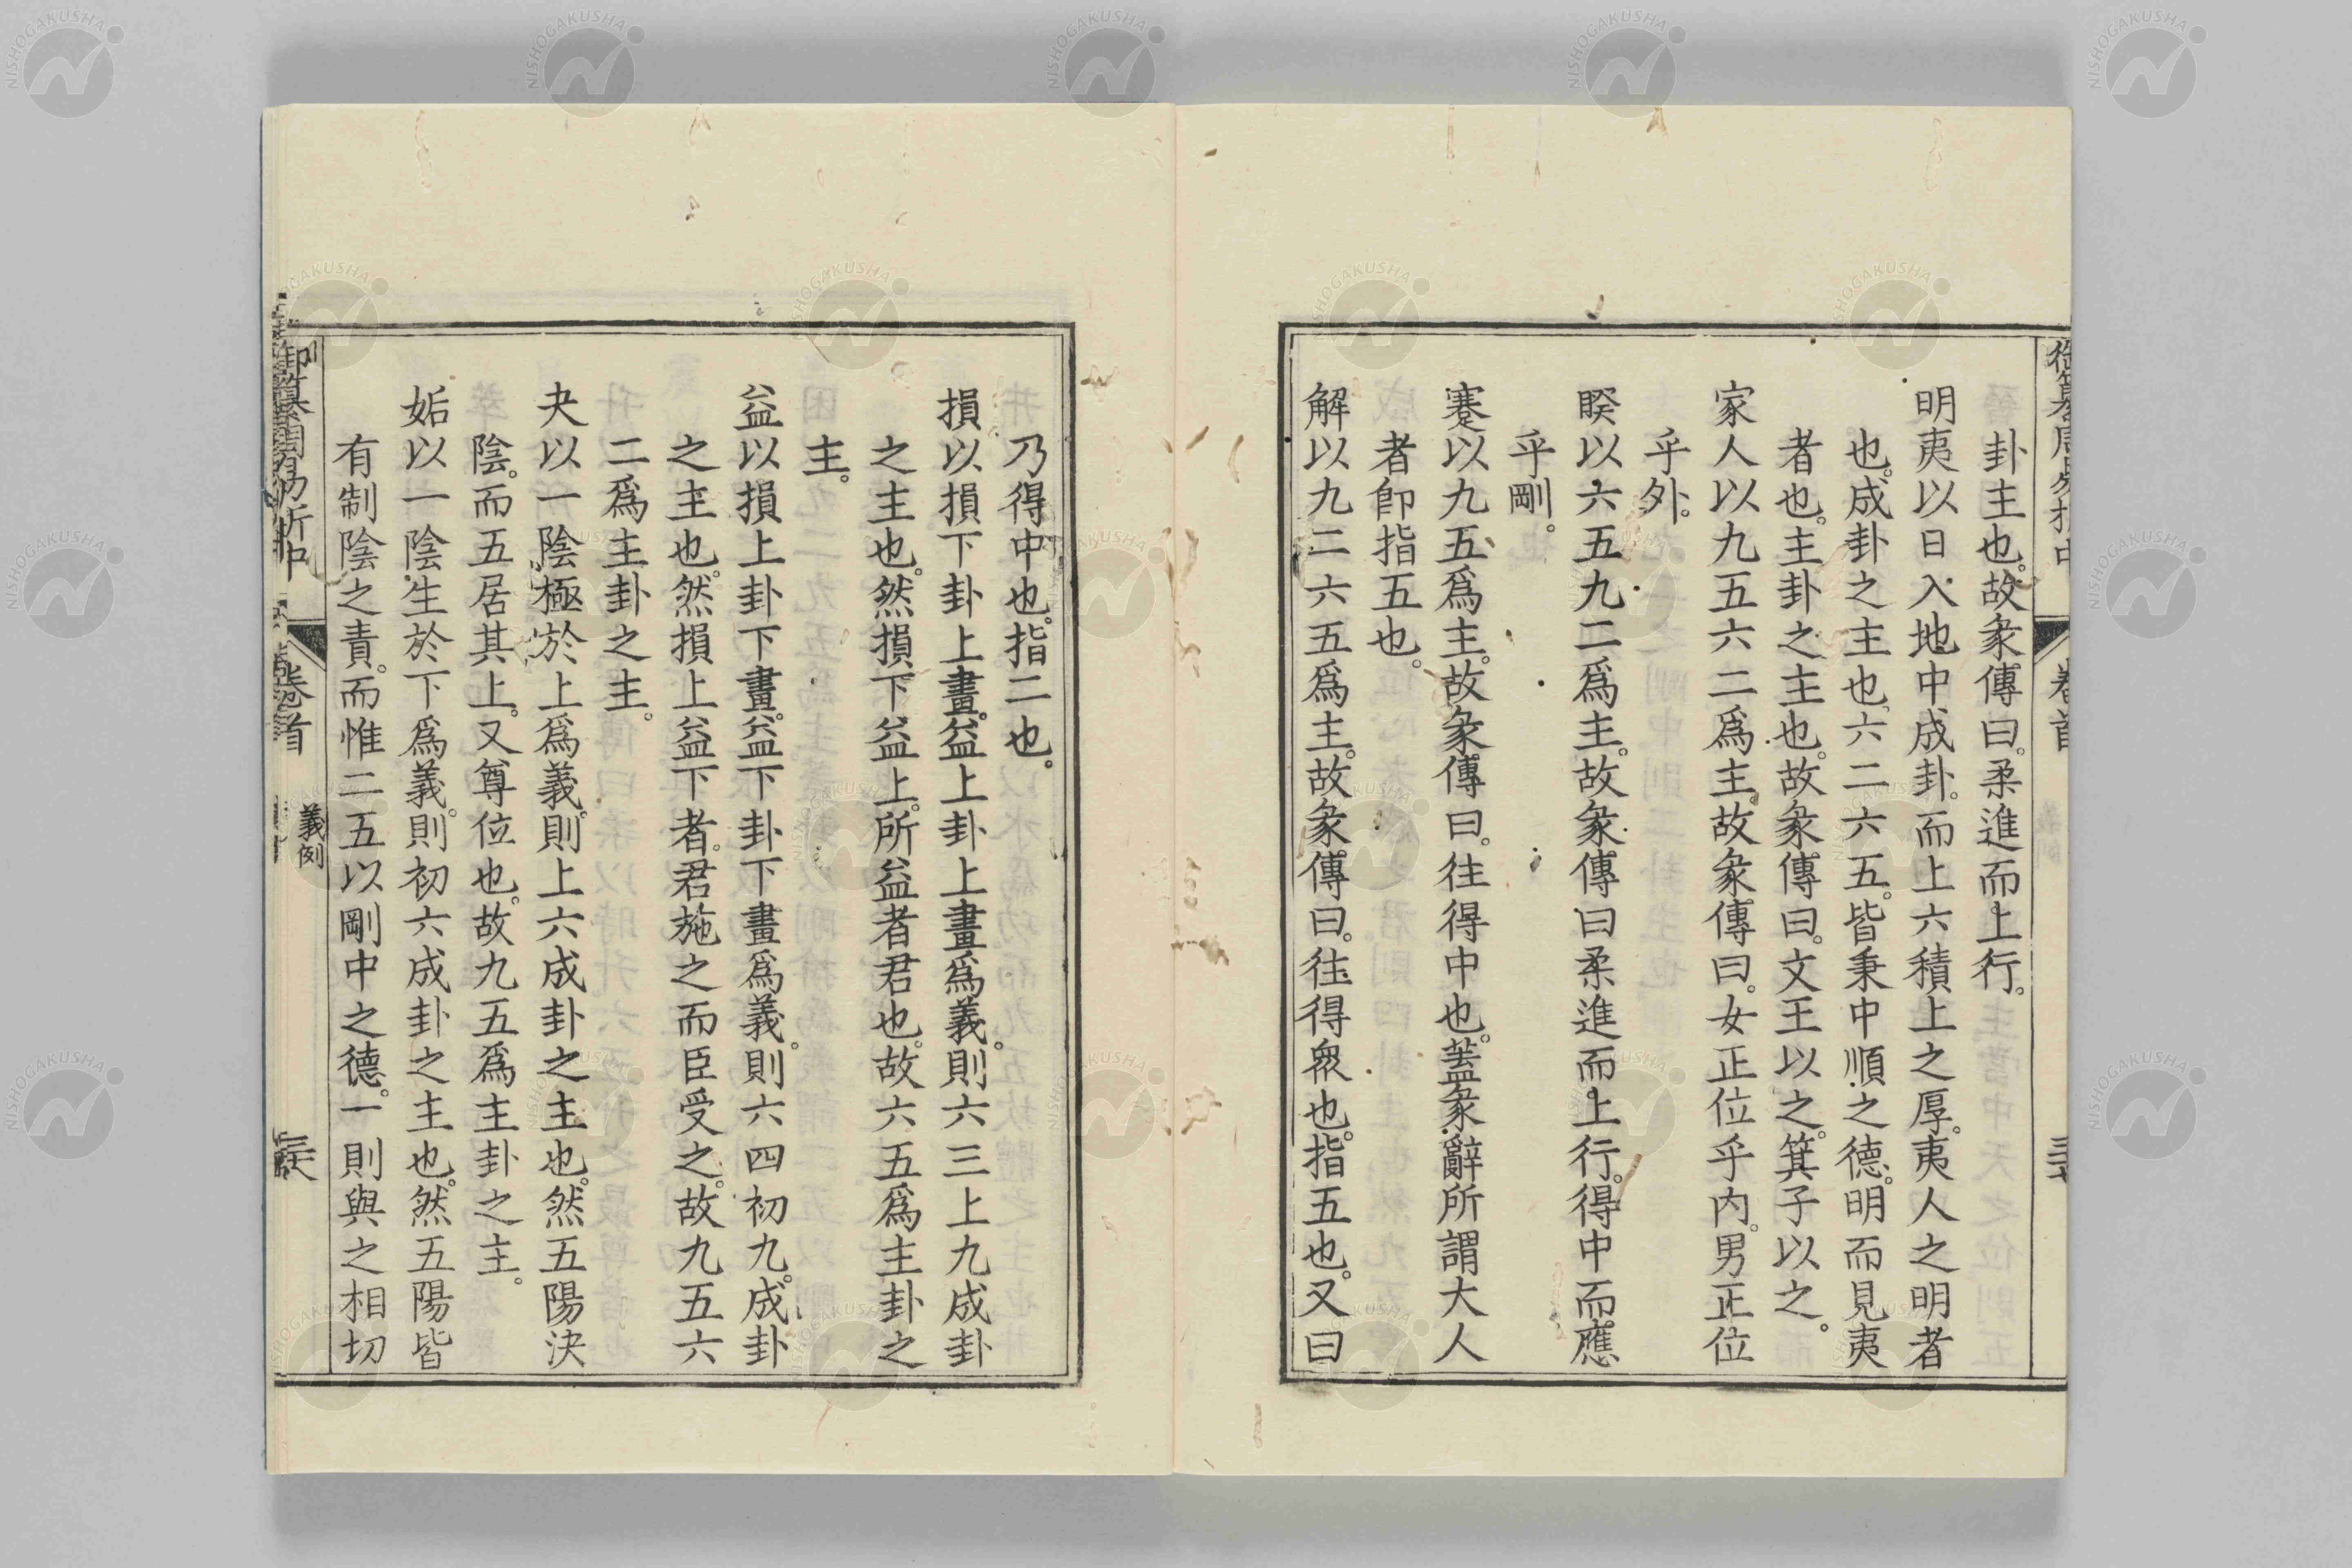 卦主也。故彖傳曰。柔進而上行。
明夷以日入地中成卦。而上六積上之厚。夷人之明者
也。成卦之主也。六二六五。皆秉中順之德。明而見夷
者也。主卦之主也。故彖傳曰。文王以之。箕子以之。
家人以九五六二爲主。故彖傳曰。女正位乎内。男正位
乎外。
睽以六五九二爲主。故彖傳曰柔進而上行。得中而應
乎剛。
蹇以九五爲主。故彖傳曰。往得中也。蓋彖辭所謂大人
者卽指五也。
解以九二六五爲主。故彖傳曰。往得衆也。指五也。又曰
乃得中也。指二也。
損以損下卦上畫。益上卦上畫爲義。則六三上九成卦
之主也。然損下益上。所益者君也。故六五爲主卦之
主。
益以損上卦下畫。益下卦下畫爲義。則六四初九。成卦
之主也。然損上益下者。君施之而臣受之。故九五六
二爲主卦之主。
夬以一陰極於上爲義。則上六成卦之主也。然五陽決
陰。而五居其上。又尊位也。故九五爲主卦之主。
姤以一陰生於下爲義。則初六成卦之主也。然五陽皆
有制陰之責。而惟二五以剛中之德。一則與之相切
御纂周易折中
卷首
義例
NISHOGAKUSHA